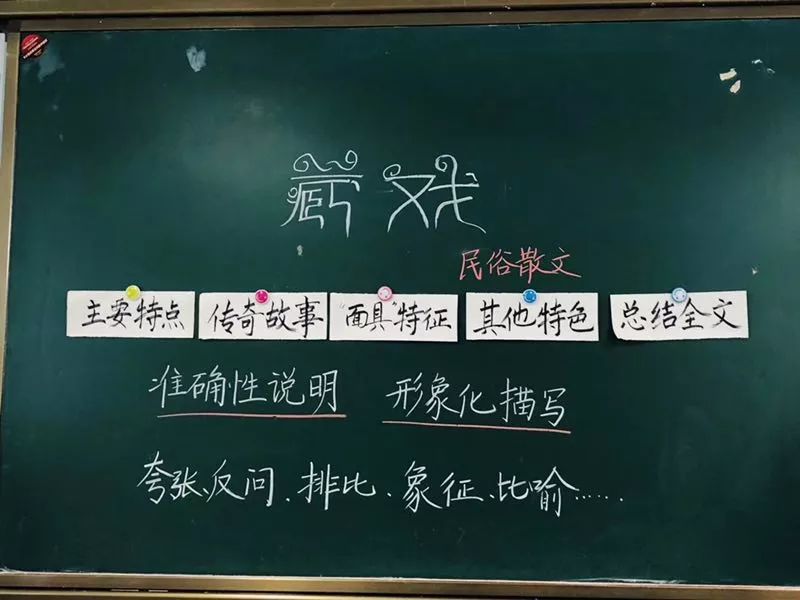 藏戏
民俗散文
主要特点 传奇故事 “面具”特征 其他特色 总结全文
准确性说明 形象化描写
夸张、反问、排比、象征、比喻……